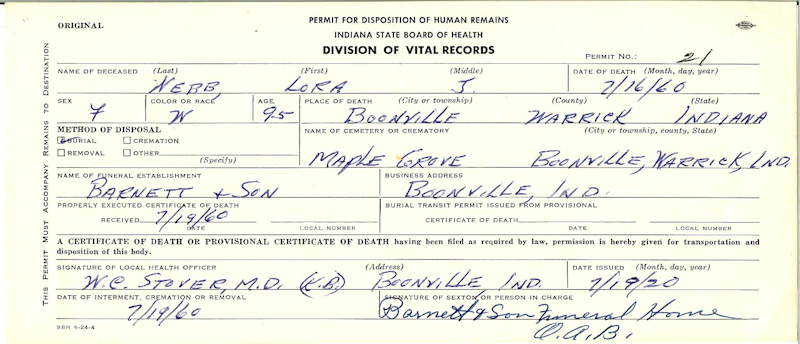 ORIGINAL
PERMIT FOR DISPOSITION OF HUMAN REMAINS
INDIANA STATE BOARD OF HEALTH
DIVISION OF VITAL RECORDS
PERMIT NO.: 21
THIS PERMIT MUST ACCOMPANY REMAINS TO DESTINATION
NAME OF DECEASED (Last) (First) (Middle) DATE OF DEATH (Month, day, year)
WEBB, LORA J. 7/16/60
SEX COLOR OR RACE AGE PLACE OF DEATH (City or township) (County) (State)
F W 95 BOONVILLE WARRICK INDIANA
METHOD OF DISPOSAL NAME OF CEMETERY OR CREMATORY (City or township, county, State)
BURIAL CREMATION
REMOVAL OTHER
(Specify)
MAPLE GROVE BOONVILLE, WARRICK, IND.
NAME OF FUNERAL ESTABLISHMENT BUSINESS ADDRESS
BARNETT & SON BOONVILLE, IND.
PROPERLY EXECUTED CERTIFICATE OF DEATH BURIAL TRANSIT PERMIT ISSUED FROM PROVISIONAL
RECEIVED 7/19/60 CERTIFICATE OF DEATH
DATE LOCAL NUMBER DATE LOCAL NUMBER
A CERTIFICATE OF DEATH OR PROVISIONAL CERTIFICATE OF DEATH having been filed as required by law, permission is hereby given for transportation and
disposition of this body.
SIGNATURE OF LOCAL HEALTH OFFICER (Address) DATE ISSUED (Month, day, year)
W.C. STOVER, M.D. (K.B.) BOONVILLE, IND. 7/19/20
DATE OF INTERMENT, CREMATION OR REMOVAL SIGNATURE OF SEXTON OR PERSON IN CHARGE
7/19/60 Barnett & Son Funeral Home
O.A.B.
SBH 6-24-4